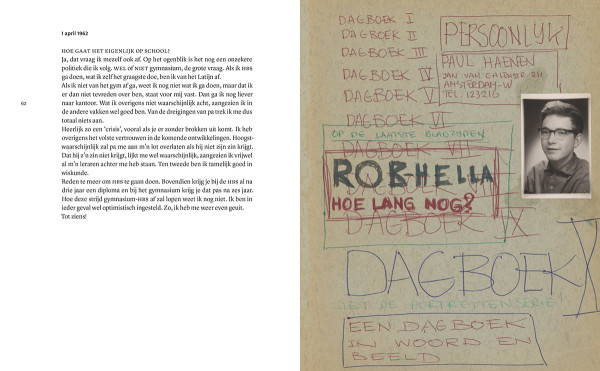 1 april 1962
HOE GAAT HET EIGENLIJK OP SCHOOL?
Ja, dat vraag ik mezelf ook af. Op het ogenblik is het nog een onzekere
politiek die ik volg. WEL OF NIET gymnasium, de grote vraag. Als ik HBS
ga doen, wat ik zelf het graagste doe, ben ik van het Latijn af.
Als ik niet van het gym af ga, weet ik nog niet wat ik ga doen, maar dat ik
er dan niet tevreden over ben, staat voor mij vast. Dan ga ik nog liever
naar kantoor. Wat ik overigens niet waarschijnlijk acht, aangezien ik in
de andere vakken wel goed ben. Van de dreigingen van pa trek ik me dus
totaal niets aan.
Heerlijk zo een ‘crisis’, vooral als je er zonder brokken uit komt. Ik heb
overigens het volste vertrouwen in de komende ontwikkelingen. Hoogst-
waarschijnlijk zal pa me aan m’n lot overlaten als hij niet zijn zin krijgt.
Dat hij z’n zin niet krijgt, lijkt me wel waarschijnlijk, aangezien ik vrijwel
al m’n leraren achter me heb staan. Ten tweede ben ik tamelijk goed in
wiskunde.
Reden te meer om HBS te gaan doen. Bovendien krijg je bij de HBS al na
drie jaar een diploma en bij het gymnasium krijg je dat pas na zes jaar.
Hoe deze strijd gymnasium-HBS af zal lopen weet ik nog niet. Ik ben in
ieder geval wel optimistisch ingesteld. Zo, ik heb me weer even geuit.
Tot ziens!
62
DAGBOEK I
DAGBOEK II
DAGBOEK III
DAGBOEK IV
DAGBOEK V
DAGBOEK VI
PERSOONLIJK
PAUL HAENEN
JAN VAN GALENSTR 211
AMSTERDAM-W
TEL. 123216
OP DE LAATSTE BLADZIJDEN
DAGBOEK VII
ROB-HELLA
HOE LANG NOG?
DAGBOEK IX
DAGBOEK X
MET DE PORTRETTENSERIE!
EEN DAGBOEK
IN WOORD EN
BEELD